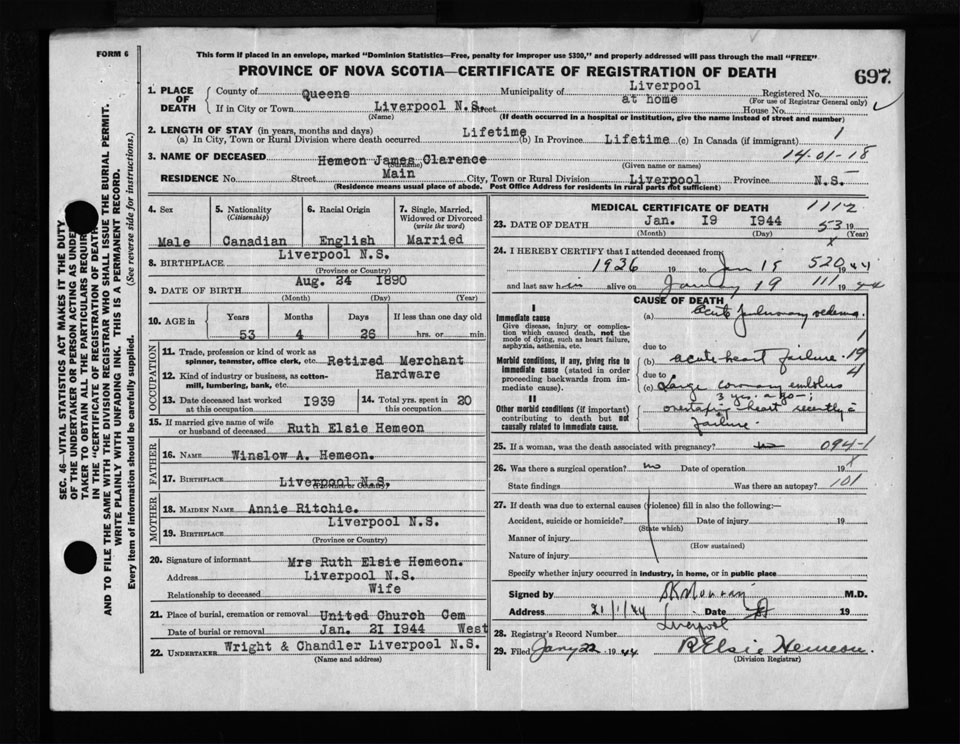 FORM 6
This form if placed in an envelope, marked "Dominion Statistics—Free, penalty for improper use $300," and properly addressed will pass through the mail "FREE"
PROVINCE OF NOVA SCOTIA—CERTIFICATE OF REGISTRATION OF DEATH
697
SEC. 46—VITAL STATISTICS ACT MAKES IT THE DUTY
OF THE UNDERTAKER OR PERSON ACTING AS UNDER-
TAKER TO OBTAIN ALL THE PARTICULARS REQUIRED
IN THE "CERTIFICATE OF REGISTRATION OF DEATH"
AND TO FILE THE SAME WITH THE DIVISION REGISTRAR WHO SHALL ISSUE THE BURIAL PERMIT.
WRITE PLAINLY WITH UNFADING INK. THIS IS A PERMANENT RECORD.
Every item of information should be carefully supplied. (See reverse side for instructions.)
1. PLACE OF DEATH
County of Queens Municipality of Liverpool Registered No.
(For use of Registrar General only)
If in City or Town Liverpool N.S. Street at home House No.
(Name) (If death occurred in a hospital or institution, give the name instead of street and number)
2. LENGTH OF STAY (in years, months and days)
(a) In City, Town or Rural Division where death occurred Lifetime (b) In Province Lifetime (c) In Canada (if immigrant) 1
14-01-18
3. NAME OF DECEASED Hemeon James Clarence
(Surname) (Given name or names)
RESIDENCE No. Street Main City, Town or Rural Division Liverpool Province N.S.
(Residence means usual place of abode. Post Office Address for residents in rural parts not sufficient)
4. Sex
Male
5. Nationality
(Citizenship)
Canadian
6. Racial Origin
English
7. Single, Married, Widowed or Divorced
(write the word)
Married
8. BIRTHPLACE Liverpool N.S.
(Province or Country)
9. DATE OF BIRTH Aug. 24 1890
(Month) (Day) (Year)
10. AGE in Years Months Days If less than one day old
53 4 26 hrs. or min.
OCCUPATION
11. Trade, profession or kind of work as
spinner, teamster, office clerk, etc. Retired Merchant
12. Kind of industry or business, as cotton-
mill, lumbering, bank, etc. Hardware
13. Date deceased last worked
at this occupation 1939
14. Total yrs. spent in
this occupation 20
15. If married give name of wife
or husband of deceased Ruth Elsie Hemeon
FATHER
16. NAME Winslow A. Hemeon.
17. BIRTHPLACE Liverpool N.S.
(Province or Country)
MOTHER
18. MAIDEN NAME Annie Ritchie.
19. BIRTHPLACE Liverpool N.S.
(Province or Country)
20. Signature of informant Mrs Ruth Elsie Hemeon.
Address Liverpool N.S.
Relationship to deceased Wife
21. Place of burial, cremation or removal United Church Cem
Date of burial or removal Jan. 21 1944 West
22. UNDERTAKER Wright & Chandler Liverpool N.S.
(Name and address)
MEDICAL CERTIFICATE OF DEATH 1112
23. DATE OF DEATH Jan. 19 1944
(Month) (Day) (Year)
53 19
x
24. I HEREBY CERTIFY that I attended deceased from
1936 19 to Jan 19 1944
520
and last saw him alive on January 19 1944
111
CAUSE OF DEATH
I
Immediate cause
Give disease, injury or complica-
tion which caused death, not the
mode of dying, such as heart failure,
asphyxia, asthenia, etc.
(a) Acute pulmonary oedema.
due to
Morbid conditions, if any, giving rise to
immediate cause (stated in order
proceeding backwards from im-
mediate cause).
(b) acute heart failure
due to
(c) Large coronary embolus
3 yrs. ago;
II
Other morbid conditions (if important)
contributing to death but not
causally related to immediate cause.
heart recently
failure.
1
19
4
25. If a woman, was the death associated with pregnancy? no
094-1
26. Was there a surgical operation? no Date of operation 19
State findings Was there an autopsy?
101
27. If death was due to external causes (violence) fill in also the following:—
Accident, suicide or homicide? Date of injury 19
(State which)
Manner of injury
(How sustained)
Nature of injury
Specify whether injury occurred in industry, in home, or in public place
Signed by M.D.
Address Liverpool Date 21/1/44 19
28. Registrar's Record Number
29. Filed Jany 22 1944 R Elsie Hemeon.
(Division Registrar)